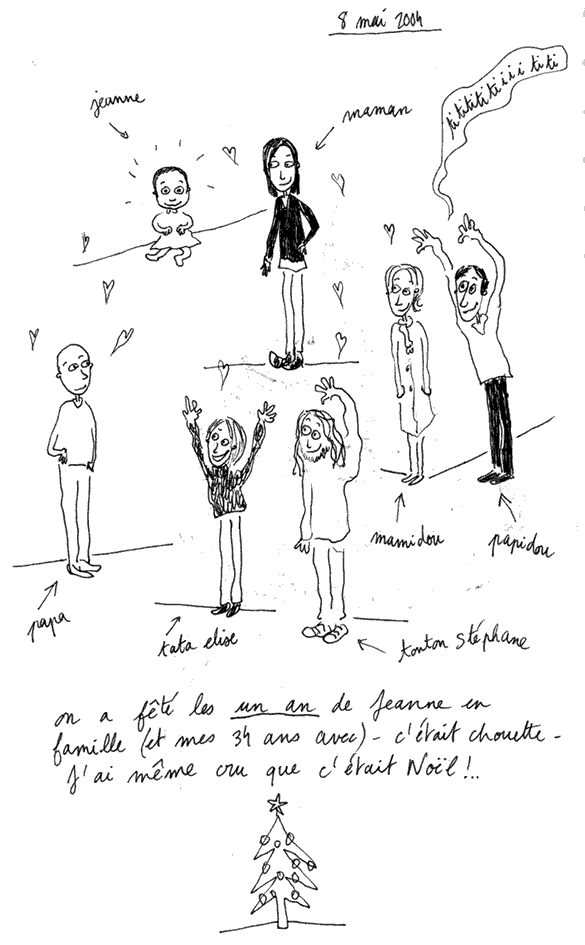 8 mai 2004
jeanne
maman
ti titititiiii titi
mamidou
papidou
papa
tata elise
tonton stéphane
on a fêté les un an de Jeanne en
famille (et mes 34 ans avec) - c'était chouette -
J'ai même cru que c'était Noël !..